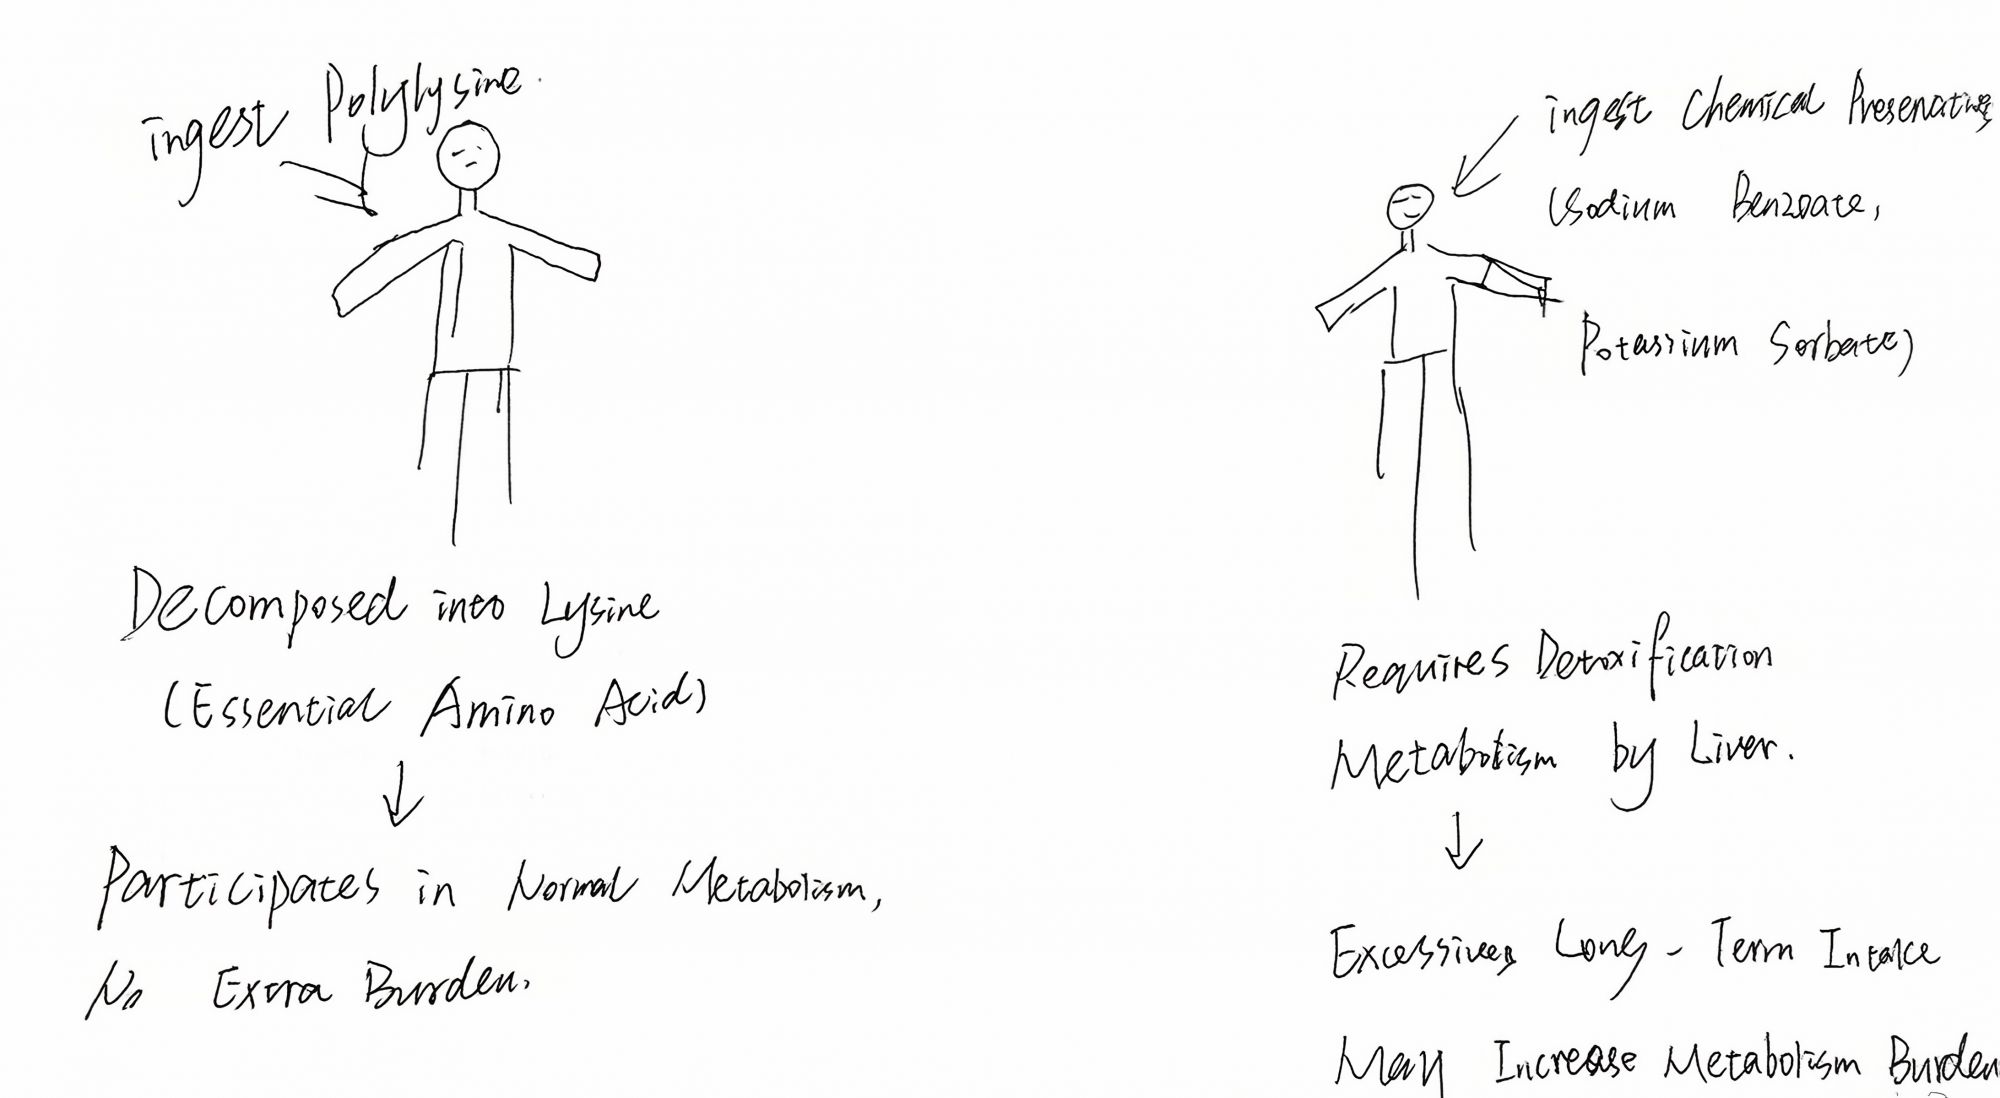 ingest Polylysine.
Decomposed into Lysine
(Essential Amino Acid)
↓
Participates in Normal Metabolism,
No Extra Burden.
ingest Chemical Preservatives
(Sodium Benzoate,
Potassium Sorbate)
Requires Detoxification
Metabolism by Liver.
↓
Excessive Long-Term Intake
May Increase Metabolism Burden